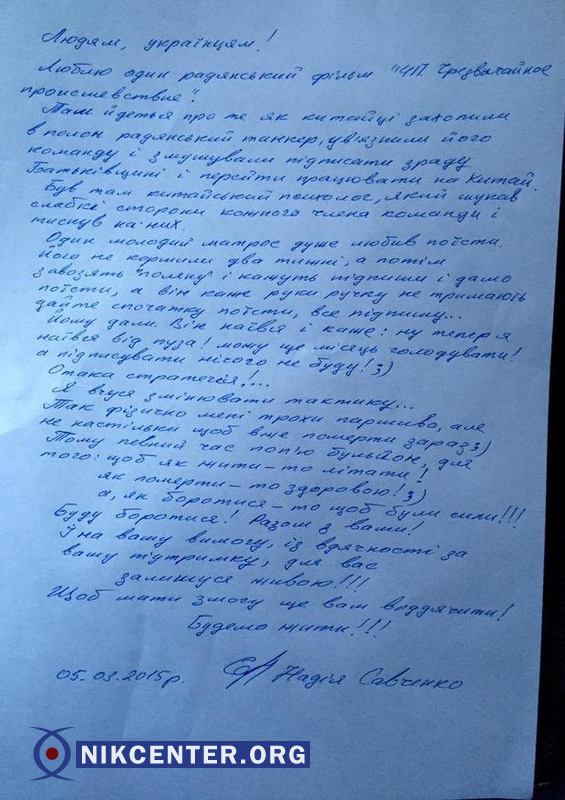 Людям, українцям!
Люблю один радянський фільм "ЧП Чрезвычайное
происшевствие".
Там йдеться про те як китайці захопили
в полон радянський танкер, ув'язнили його
команду і змушували підписати зраду
Батьківщині і перейти працювати на Китай.
Був там китайський психолог, який шукав
слабкі сторони кожного члена команди і
тиснув на них.
Один молодий матрос дуже любив поїсти.
Його не кормили два тижні, а потім
завозять "поляну" і кажуть підпиши і дамо
поїсти, а він каже руки ручку не тримають
дайте спочатку поїсти, все підпишу...
Йому дали. Він наївся і каже: ну тепер я
наївся від пуза! можу ще місяць голодувати!
а підписувати нічого не буду! ;)
Отака стратегія!...
Я вчуся змінювати тактику...
Так фізично мені трохи паршиво, але
не настільки щоб вже померти зараз ;)
Тому певний час поп'ю бульйон, для
того: щоб як жити – то літати!
як померти – то здоровою! ;)
а, як боротися – то щоб були сили!!!
Буду боротися! Разом з вами!
Й на вашу вимогу, із вдячності за
вашу підтримку, для вас
залишуся живою!!!
Щоб мати змогу ще вам віддячити!
Будемо жити!!!
05.03.2015р. Надія Савченко
NIKCENTER.ORG